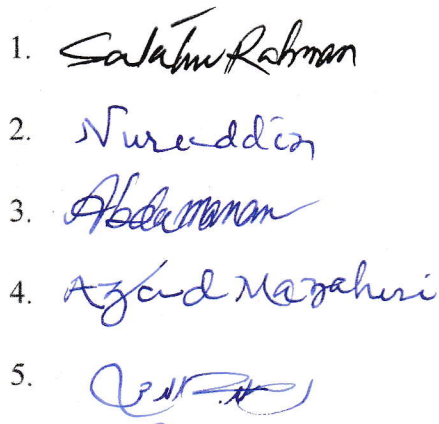 1. Salatur Rahman
2. Nureddin
3. Abdamanan
4. Azad Mazaheri
5.